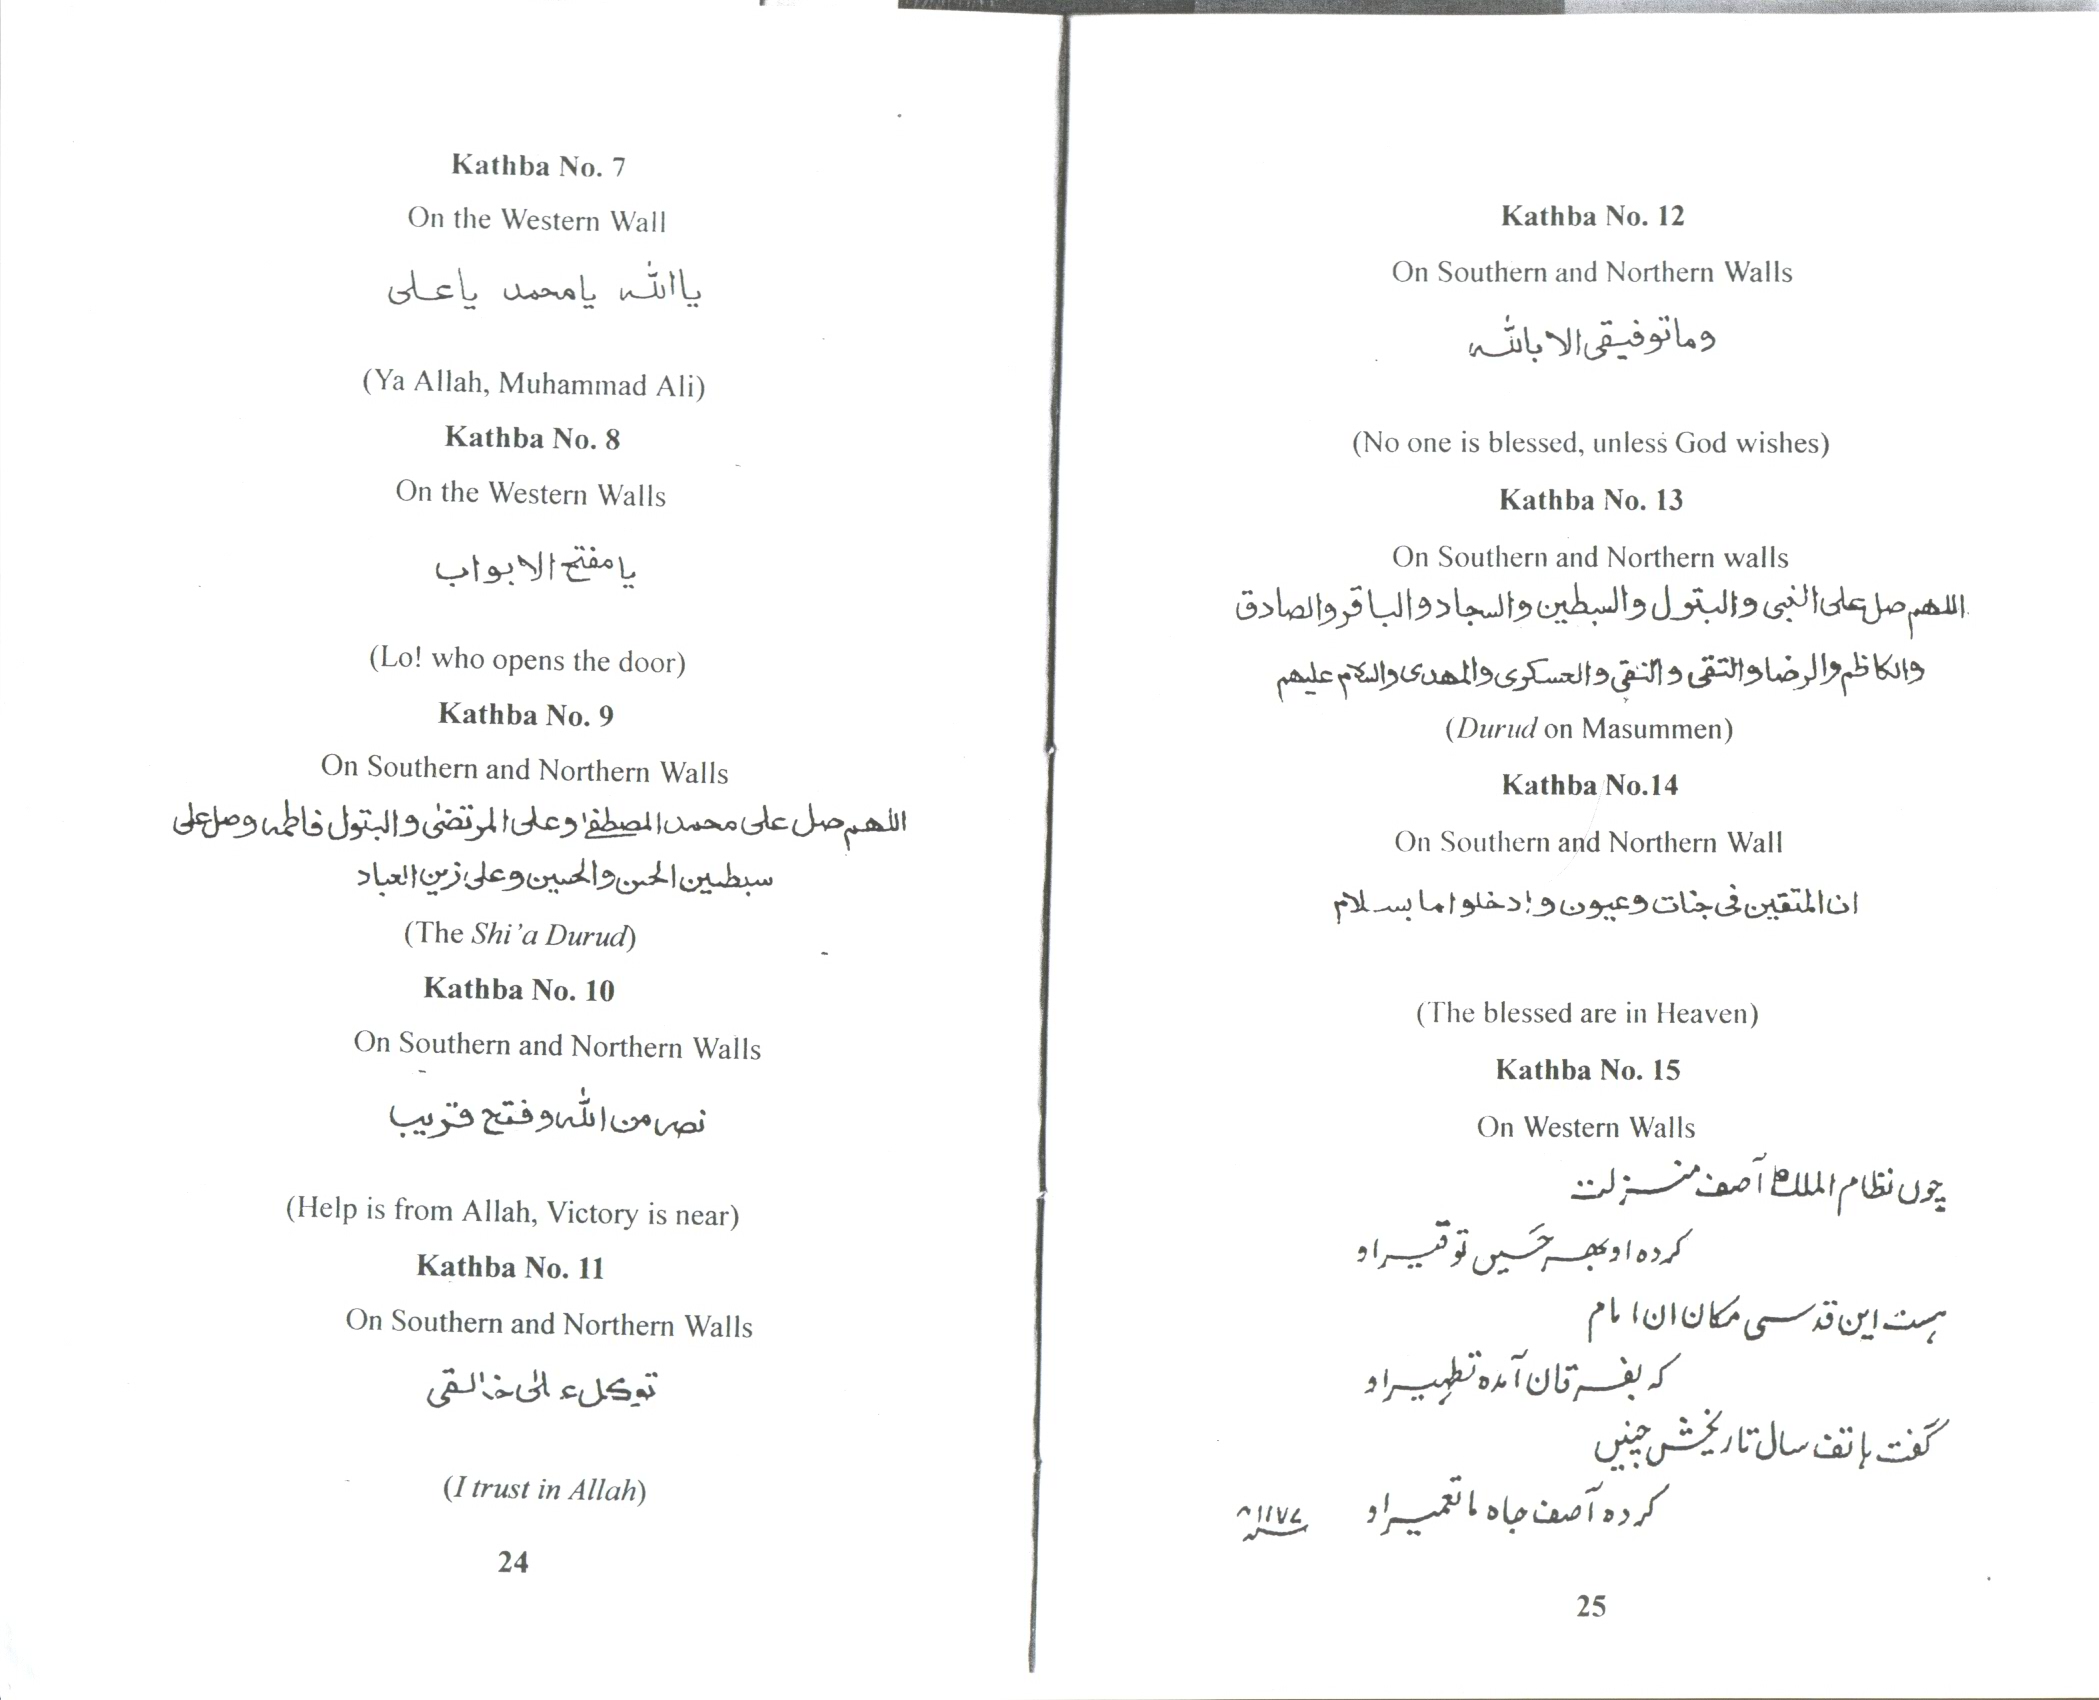 Kathba No. 7
On the Western Wall
یااللّٰہ یامحمد یاعلی
(Ya Allah, Muhammad Ali)
Kathba No. 8
On the Western Walls
یامفتح الابواب
(Lo! who opens the door)
Kathba No. 9
On Southern and Northern Walls
اللھم صل علی محمد المصطفیٰ وعلی المرتضیٰ والبتول فاطمہ وصل علی
سبطین الحسن والحسین وعلی زین العباد
(The Shi'a Durud)
Kathba No. 10
On Southern and Northern Walls
نصر من اللّٰہ وفتح قریب
(Help is from Allah, Victory is near)
Kathba No. 11
On Southern and Northern Walls
توکل علیٰ خالقی
(I trust in Allah)
24
Kathba No. 12
On Southern and Northern Walls
وماتوفیقی الا باللّٰہ
(No one is blessed, unless God wishes)
Kathba No. 13
On Southern and Northern walls
اللھم صل علی النبی والبتول والسبطین والسجاد والباقر والصادق
والکاظم والرضا والتقی والنقی والعسکری والمھدی والسلام علیھم
(Durud on Masummen)
Kathba No.14
On Southern and Northern Wall
ان المتقین فی جنات وعیون وادخلوا ما بسلام
(The blessed are in Heaven)
Kathba No. 15
On Western Walls
چوں نظام الملک آصف منزلت
کردہ او بھر حسیں توقیر او
ہست این قدسی مکان ان امام
کہ بفرقان آمدہ تطہیر او
گفت ہاتف سال تاریخش چنیں
کردہ آصف جاہ ما تعمیر او
25